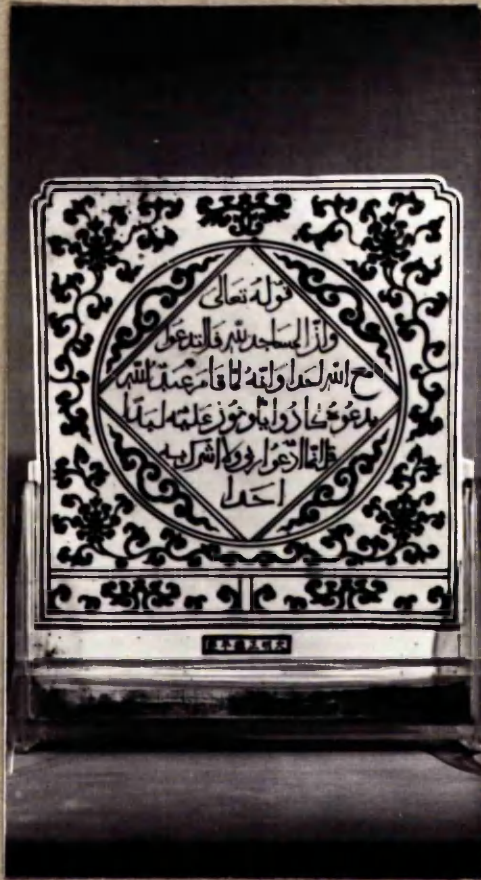 قوله تعالى
وان المساجد لله فلا تدعوا
مع الله احدا وانه لما قام عبد الله
يدعوه كادوا يكونون عليه لبدا
قال انما ادعوا ربي ولا اشرك به
احدا
大明正德年製